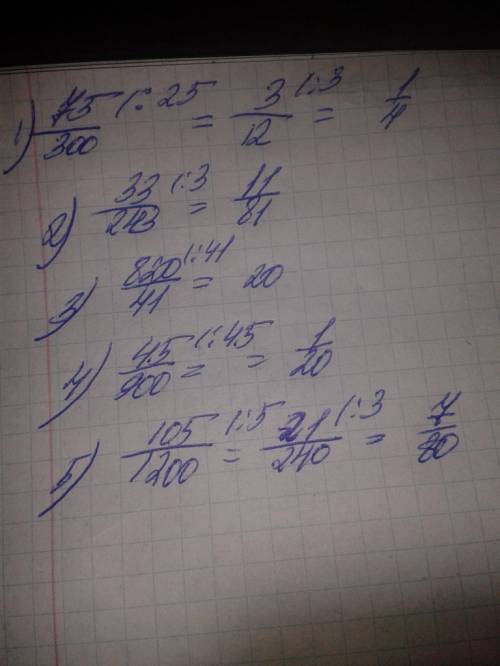 1) 75/300 (:25 = 3/12 (:3 = 1/4
2) 33/243 (:3 = 11/81
3) 820/41 (:41 = 20
4) 45/900 (:45 = = 1/20
5) 105/1200 (:5 = 21/240 (:3 = 7/80